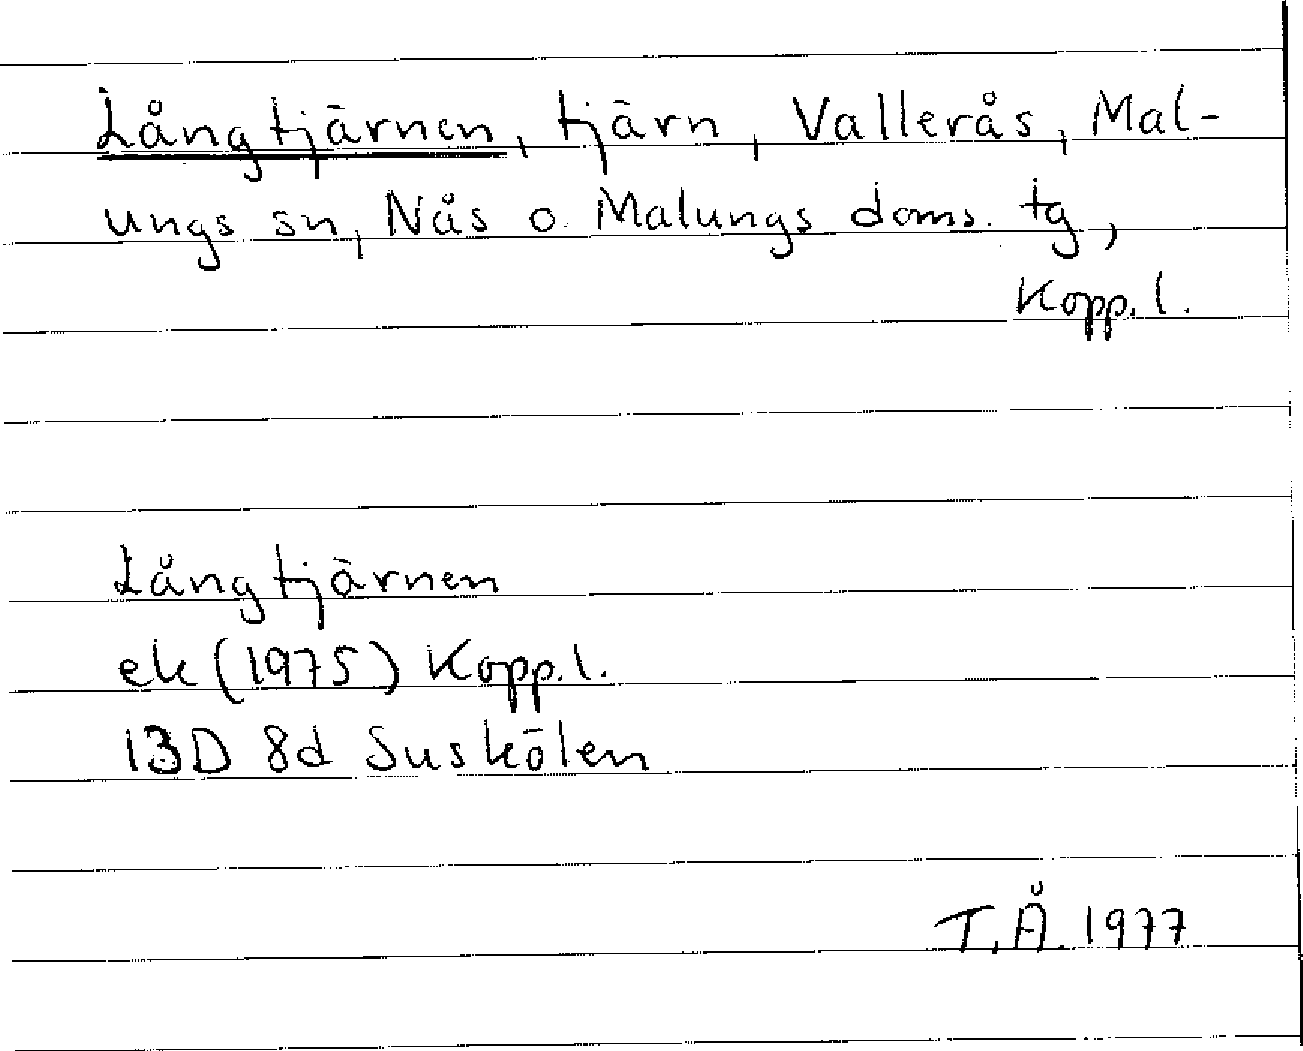 Långtjärnen, tjärn, Vallerås, Mal-
ungs sn, Nås o. Malungs doms. tg,
Kopp. l.
Långtjärnen
ek (1975) Kopp. l.
13D 8d Suskölen
T.Å. 1977